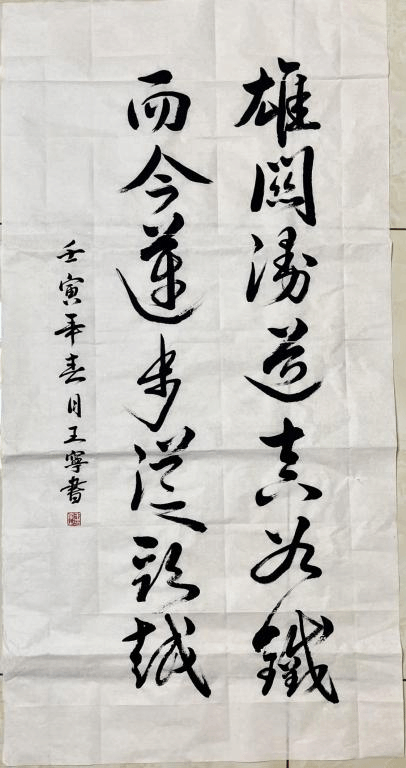 雄關漫道真如鐵
而今邁步從頭越
壬寅年春月王寧書